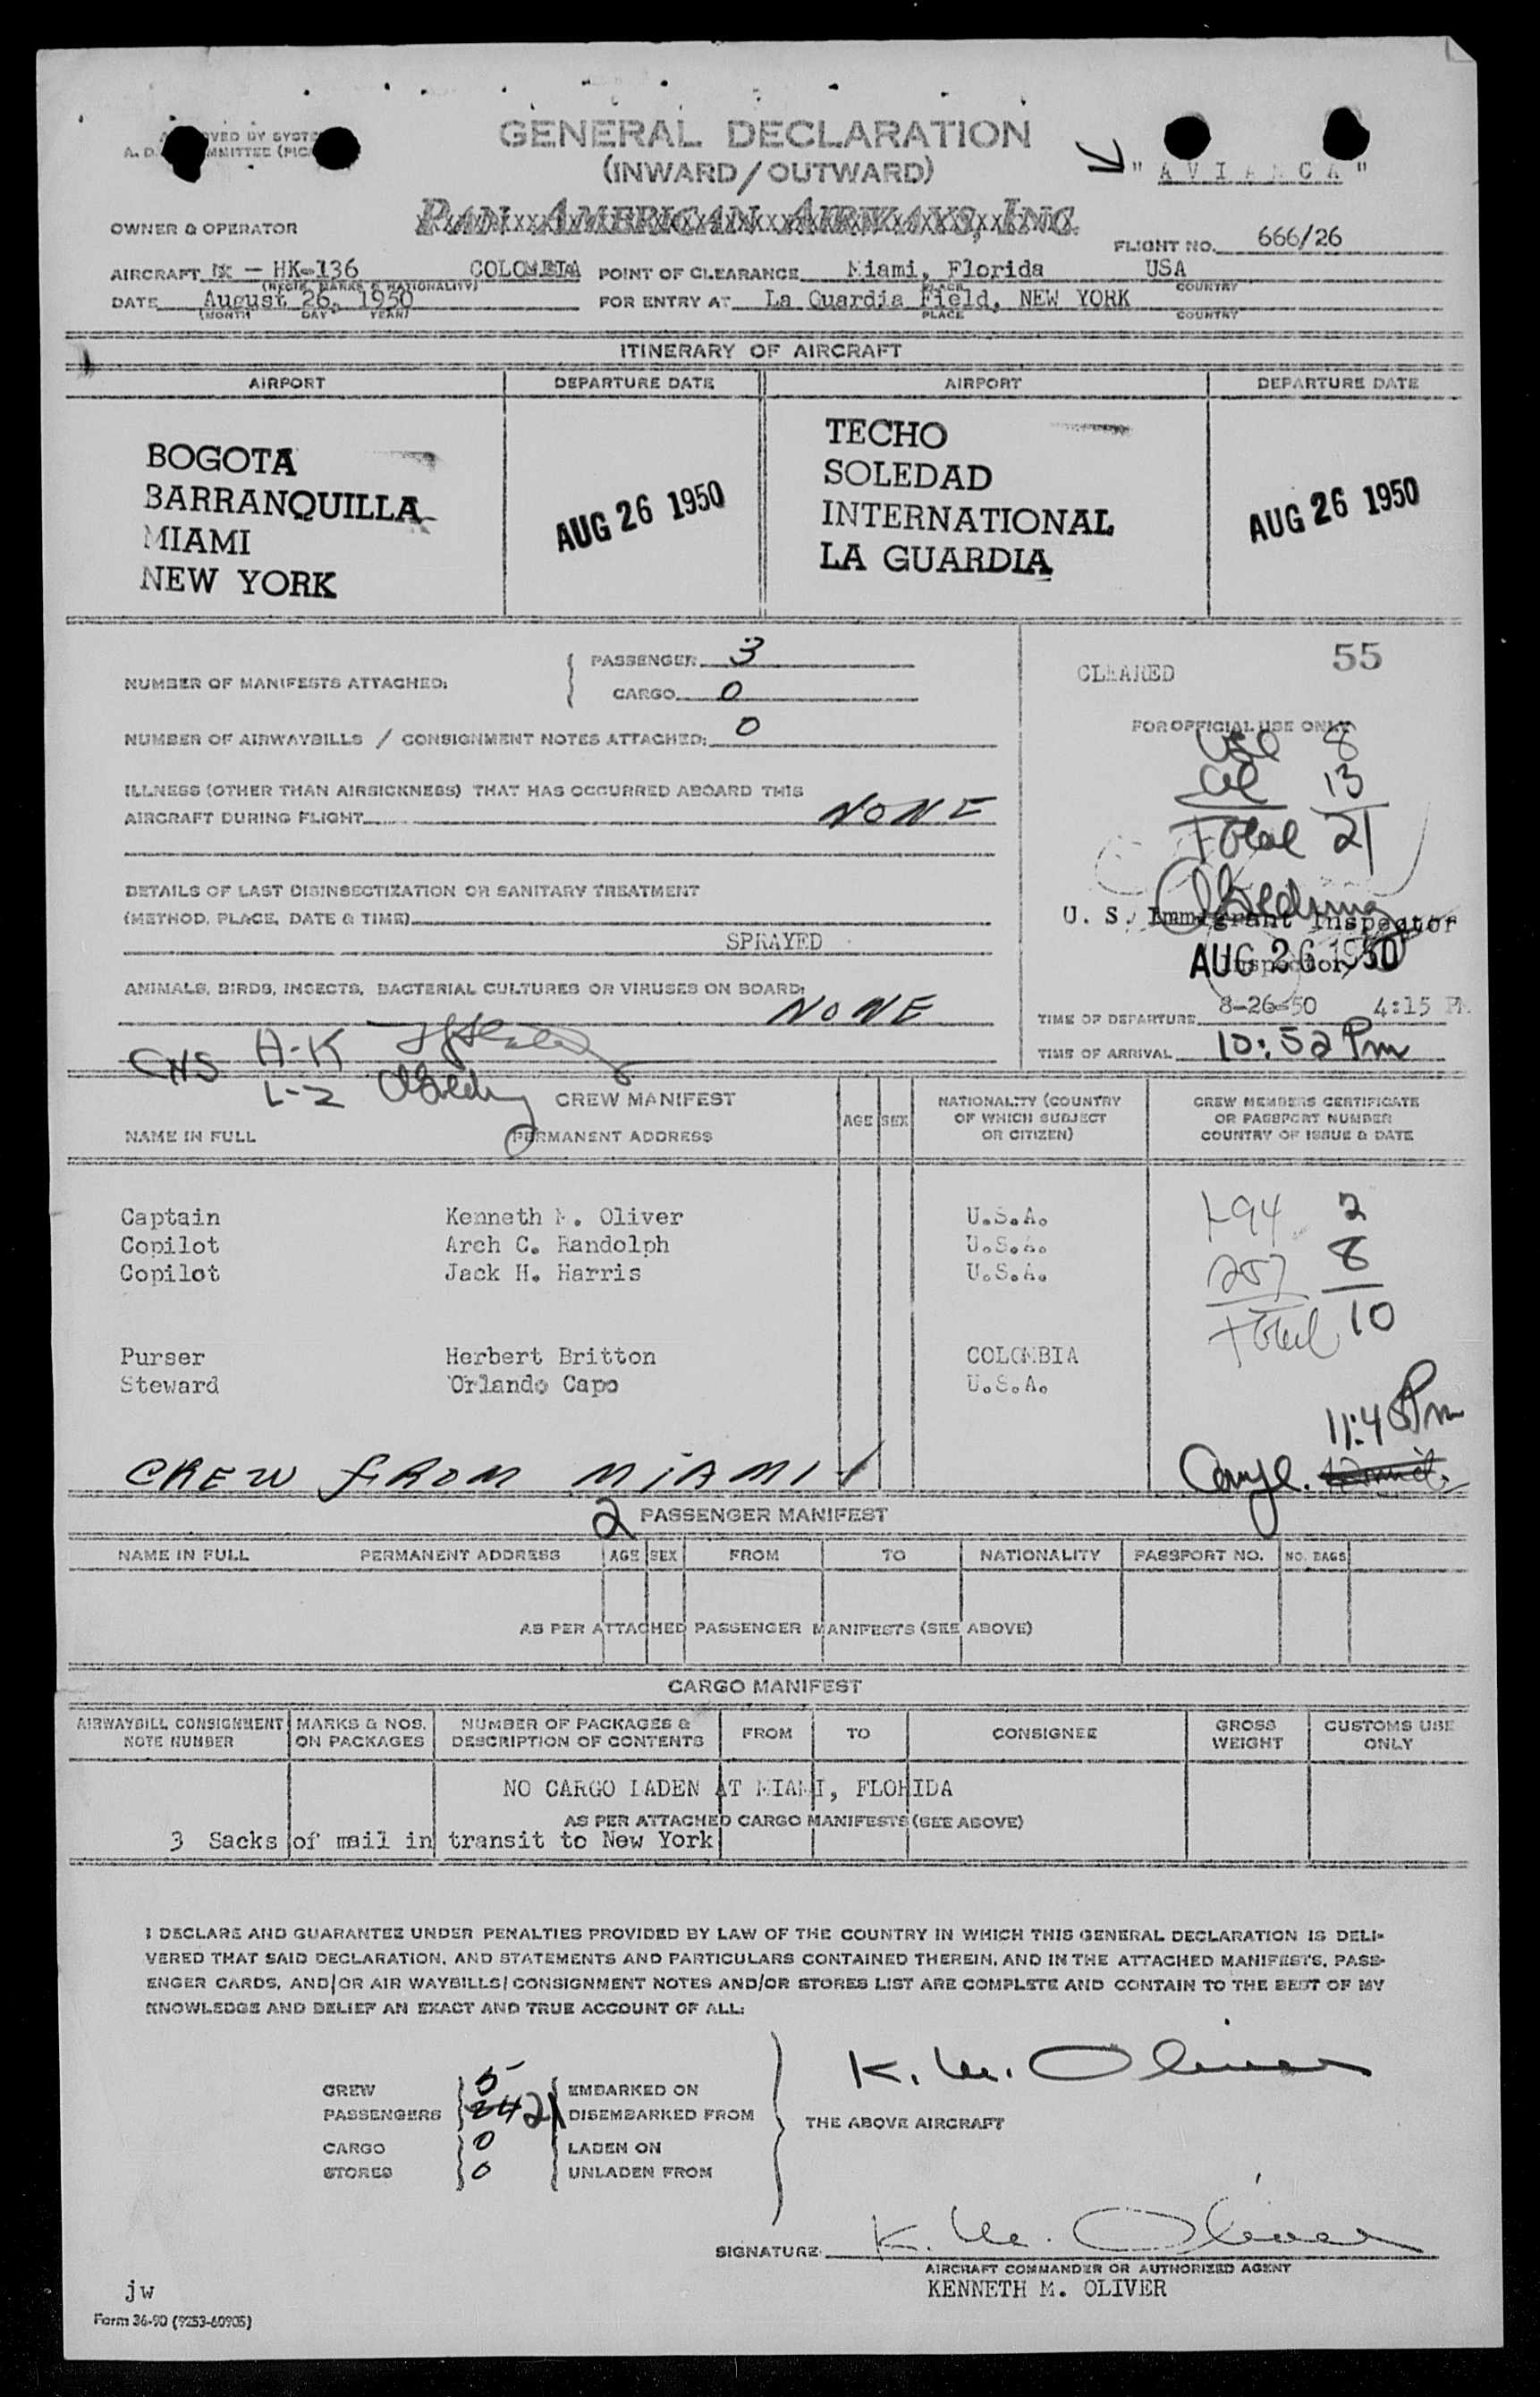 GENERAL DECLARATION
(INWARD/OUTWARD)
" A V I A N C A "
PAN AMERICAN AIRWAYS, INC.
OWNER & OPERATOR
FLIGHT NO. 666/26
AIRCRAFT - HK-136 COLOMBIA POINT OF CLEARANCE Miami, Florida USA
(REGIS. MARKS & NATIONALITY) PLACE COUNTRY
DATE August 26, 1950 FOR ENTRY AT La Guardia Field, NEW YORK
(MONTH DAY YEAR) PLACE COUNTRY
ITINERARY OF AIRCRAFT
AIRPORT DEPARTURE DATE AIRPORT DEPARTURE DATE
BOGOTA TECHO
BARRANQUILLA SOLEDAD
AUG 26 1950 AUG 26 1950
MIAMI INTERNATIONAL
NEW YORK LA GUARDIA
NUMBER OF MANIFESTS ATTACHED: PASSENGER 3
CARGO 0
CLEARED 55
NUMBER OF AIRWAYBILLS / CONSIGNMENT NOTES ATTACHED: 0
FOR OFFICIAL USE ONLY
USC 8
al 13
Total 21
ILLNESS (OTHER THAN AIRSICKNESS) THAT HAS OCCURRED ABOARD THIS
AIRCRAFT DURING FLIGHT NONE
DETAILS OF LAST DISINSECTIZATION OR SANITARY TREATMENT
(METHOD, PLACE, DATE & TIME)
SPRAYED
U. S. Immigrant Inspector
AUG 26 1950
Inspector
ANIMALS, BIRDS, INSECTS, BACTERIAL CULTURES OR VIRUSES ON BOARD:
NONE
TIME OF DEPARTURE 8-26-50 4:15 PM
TIME OF ARRIVAL 10:52 Pm
CHS A-K
L-2
CREW MANIFEST
NAME IN FULL PERMANENT ADDRESS AGE SEX NATIONALITY (COUNTRY OF WHICH SUBJECT OR CITIZEN) CREW MEMBERS CERTIFICATE OR PASSPORT NUMBER COUNTRY OF ISSUE & DATE
Captain Kenneth M. Oliver U.S.A.
Copilot Arch C. Randolph U.S.A.
Copilot Jack H. Harris U.S.A.
I-94 2
257 8
Total 10
Purser Herbert Britton COLOMBIA
Steward Orlando Capo U.S.A.
11:48 Pm
CREW FROM MIAMI
2 PASSENGER MANIFEST
NAME IN FULL PERMANENT ADDRESS AGE SEX FROM TO NATIONALITY PASSPORT NO. NO. BAGS
AS PER ATTACHED PASSENGER MANIFESTS (SEE ABOVE)
CARGO MANIFEST
AIRWAYBILL CONSIGNMENT NOTE NUMBER MARKS & NOS. ON PACKAGES NUMBER OF PACKAGES & DESCRIPTION OF CONTENTS FROM TO CONSIGNEE GROSS WEIGHT CUSTOMS USE ONLY
NO CARGO LADEN AT MIAMI, FLORIDA
AS PER ATTACHED CARGO MANIFESTS (SEE ABOVE)
3 Sacks of mail in transit to New York
I DECLARE AND GUARANTEE UNDER PENALTIES PROVIDED BY LAW OF THE COUNTRY IN WHICH THIS GENERAL DECLARATION IS DELI-
VERED THAT SAID DECLARATION, AND STATEMENTS AND PARTICULARS CONTAINED THEREIN, AND IN THE ATTACHED MANIFESTS, PASS-
ENGER CARDS, AND/OR AIR WAYBILLS/CONSIGNMENT NOTES AND/OR STORES LIST ARE COMPLETE AND CONTAIN TO THE BEST OF MY
KNOWLEDGE AND BELIEF AN EXACT AND TRUE ACCOUNT OF ALL:
K. M. Oliver
CREW 5 EMBARKED ON
PASSENGERS 21 DISEMBARKED FROM THE ABOVE AIRCRAFT
CARGO 0 LADEN ON
STORES 0 UNLADEN FROM
SIGNATURE K. M. Oliver
AIRCRAFT COMMANDER OR AUTHORIZED AGENT
KENNETH M. OLIVER
jw
Form 36-90 (9253-60905)